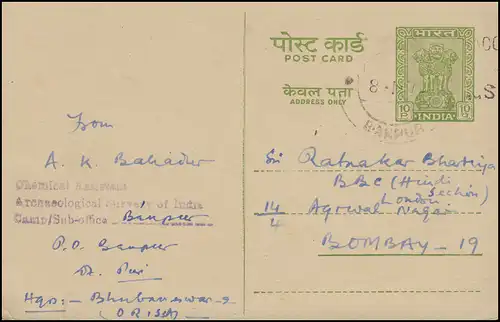 पोस्ट कार्ड
POST CARD
केवल पता
ADDRESS ONLY
भारत
10 P
INDIA
10 P
BANPUR
From
A. K. Bahadur
Chemical Assistant
Archaeological Survey of India
Camp/Sub-office Banpur
P.O. Banpur
Dt. Puri
Hqs:- Bhubaneswar-2
(ORISSA)
Sri Ratnakar Bhartiya
BBC (Hindi Section)
London
14/4 Agrwal Nagar
BOMBAY-19